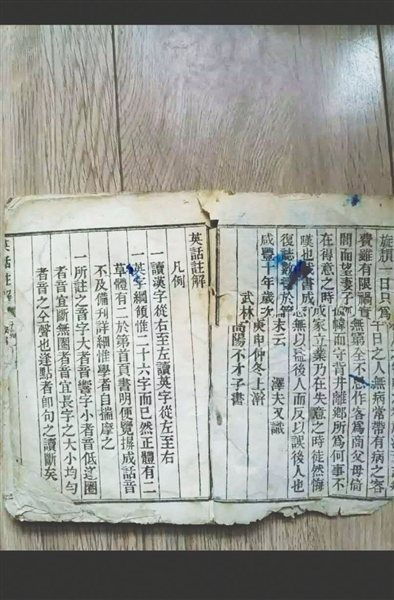 旋頹一日只爲千日之人無病常帶有病之容
費雖有限禍實無窮余不作客爲商父母倚
閭而望妻子幃而守背井離鄉所爲何事不
在得意之時成家立業乃在失意之時徒然悔
嘆也茲書成無以益後人而反以誤後人也
復誌數於篇末云 澤夫又識
咸豐十年歲次庚申仲冬上澣
武林高陽不才子書
英話註解
凡例
一讀漢字從右至左讀英字從左至右
一英字綱領惟二十六字而已然正體有二
草體有二於第首頁書明便覽攥成話音
不及備刊詳細惟學者自揣摩之
一所註之音字大者音響字小者音低逢圈
者音宜斷無圈者音宜長字之大小均勻
者音之全聲也逢點者卽句之讀斷矣
英話註解